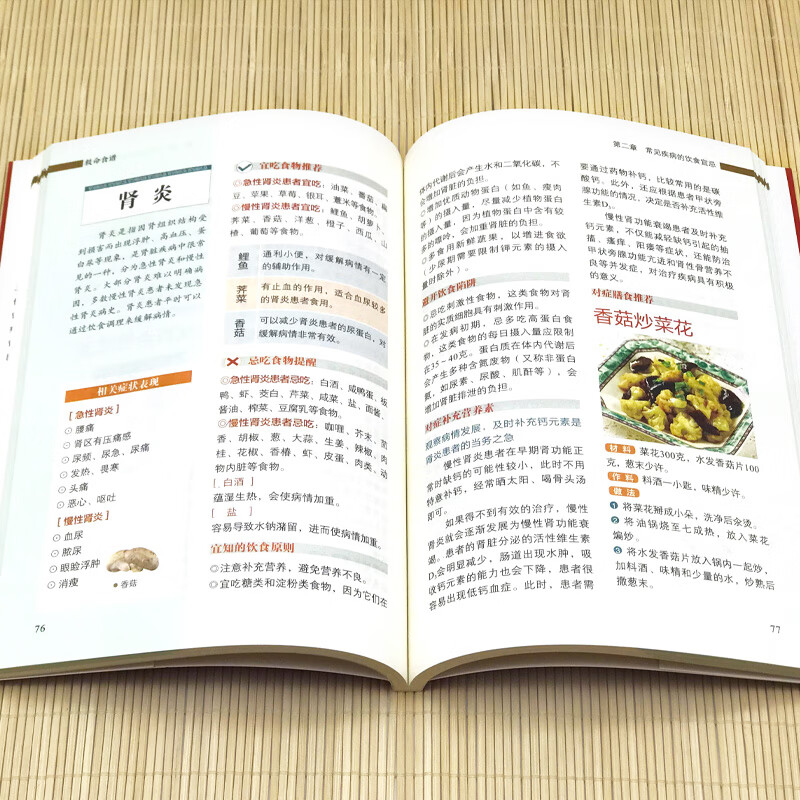 救命食谱
肾炎
肾炎是指因肾组织结构受
到损害而出现浮肿、高血压、蛋
白尿等现象，是肾脏疾病中很常
见的一种，分为急性肾炎和慢性
肾炎。大部分肾炎难以明确病
因，多数慢性肾炎患者未发现急
性肾炎病史。肾炎患者平时可以
通过饮食调理来缓解病情。
相关症状表现
[急性肾炎]
⊙腰痛
⊙肾区有压痛感
⊙尿频、尿急、尿痛
⊙发热、畏寒
⊙头痛
⊙恶心、呕吐
[慢性肾炎]
⊙血尿
⊙脓尿
⊙眼睑浮肿
⊙消瘦
●香菇
76
宜吃食物推荐
◎急性肾炎患者宜吃：油菜、番茄、扁
豆、苹果、草莓、银耳、薏米等食物。
◎慢性肾炎患者宜吃：鲤鱼、胡萝卜、
荠菜、香菇、洋葱、橙子、西瓜、山
楂、葡萄等食物。
鲤鱼
通利小便，对缓解病情有一定
的辅助作用。
荠菜
有止血的作用，适合血尿较多
的肾炎患者食用。
香菇
可以减少肾炎患者的尿蛋白，对
缓解病情非常有效。
忌吃食物提醒
◎急性肾炎患者忌吃：白酒、咸鸭蛋、板
鸭、虾、茭白、芹菜、咸菜、盐、面酱、
酱油、榨菜、豆腐乳等食物。
◎慢性肾炎患者忌吃：咖喱、芥末、茴
香、胡椒、葱、大蒜、生姜、辣椒、肉
桂、花椒、香椿、虾、皮蛋、肉类、动
物内脏等食物。
[白酒]
蕴湿生热，会使病情加重。
[盐]
容易导致水钠潴留，进而使病情加重。
宜知的饮食原则
◎注意补充营养，避免营养不良。
◎宜吃糖类和淀粉类食物，因为它们在
第二章 常见疾病的饮食宜忌
体内代谢后会产生水和二氧化碳，不
会增加肾脏的负担。
◎增加优质动物蛋白（如鱼、瘦肉
等）的摄入量，尽量减少植物蛋白
的摄入量，因为植物蛋白中含有较
多的嘌呤，会加重肾脏的负担。
◎多食用新鲜蔬果，以增进食欲
（少尿期需要限制钾元素的摄入
量时除外）。
避开饮食陷阱
◎忌吃刺激性食物，这类食物对肾
脏的实质细胞具有刺激作用。
◎在发病初期，忌多吃高蛋白食
物，这类食物的每日摄入量应限制
在35～40克。蛋白质在体内代谢后
会产生多种含氮废物（又称非蛋白
氮，如尿素、尿酸、肌酐等），会
增加肾脏排泄的负担。
对症补充营养素
观察病情发展，及时补充钙元素是
肾炎患者的当务之急
慢性肾炎患者在早期肾功能正
常时缺钙的可能性较小，此时不用
特意补钙，经常晒太阳、喝骨头汤
即可。
如果得不到有效的治疗，慢性
肾炎就会逐渐发展为慢性肾功能衰
竭。患者的肾脏分泌的活性维生素
D₃会明显减少，肠道出现水肿，吸
收钙元素的能力也会下降，患者很
容易出现低钙血症。此时，患者需
要通过药物补钙，比较常用的是碳
酸钙。此外，还应根据患者甲状旁
腺功能的情况，决定是否补充活维生
素D₃。
慢性肾功能衰竭患者及时补充
钙元素，不仅能减轻缺钙引起的抽
搐、瘙痒、阳痿等症状，还能防治
甲状旁腺功能亢进和肾性骨营养不
良等并发症，对治疗疾病具有积极
的意义。
对症膳食推荐
香菇炒菜花
材料 菜花300克，水发香菇片100
克，葱末少许。
作料 料酒一小匙，味精少许。
做法
1 将菜花掰成小朵，洗净后汆烫。
2 将油锅烧至七成热，放入菜花
煸炒。
3 将水发香菇片放入锅内一起炒，
加料酒、味精和少量的水，炒熟后
撒葱末。
77